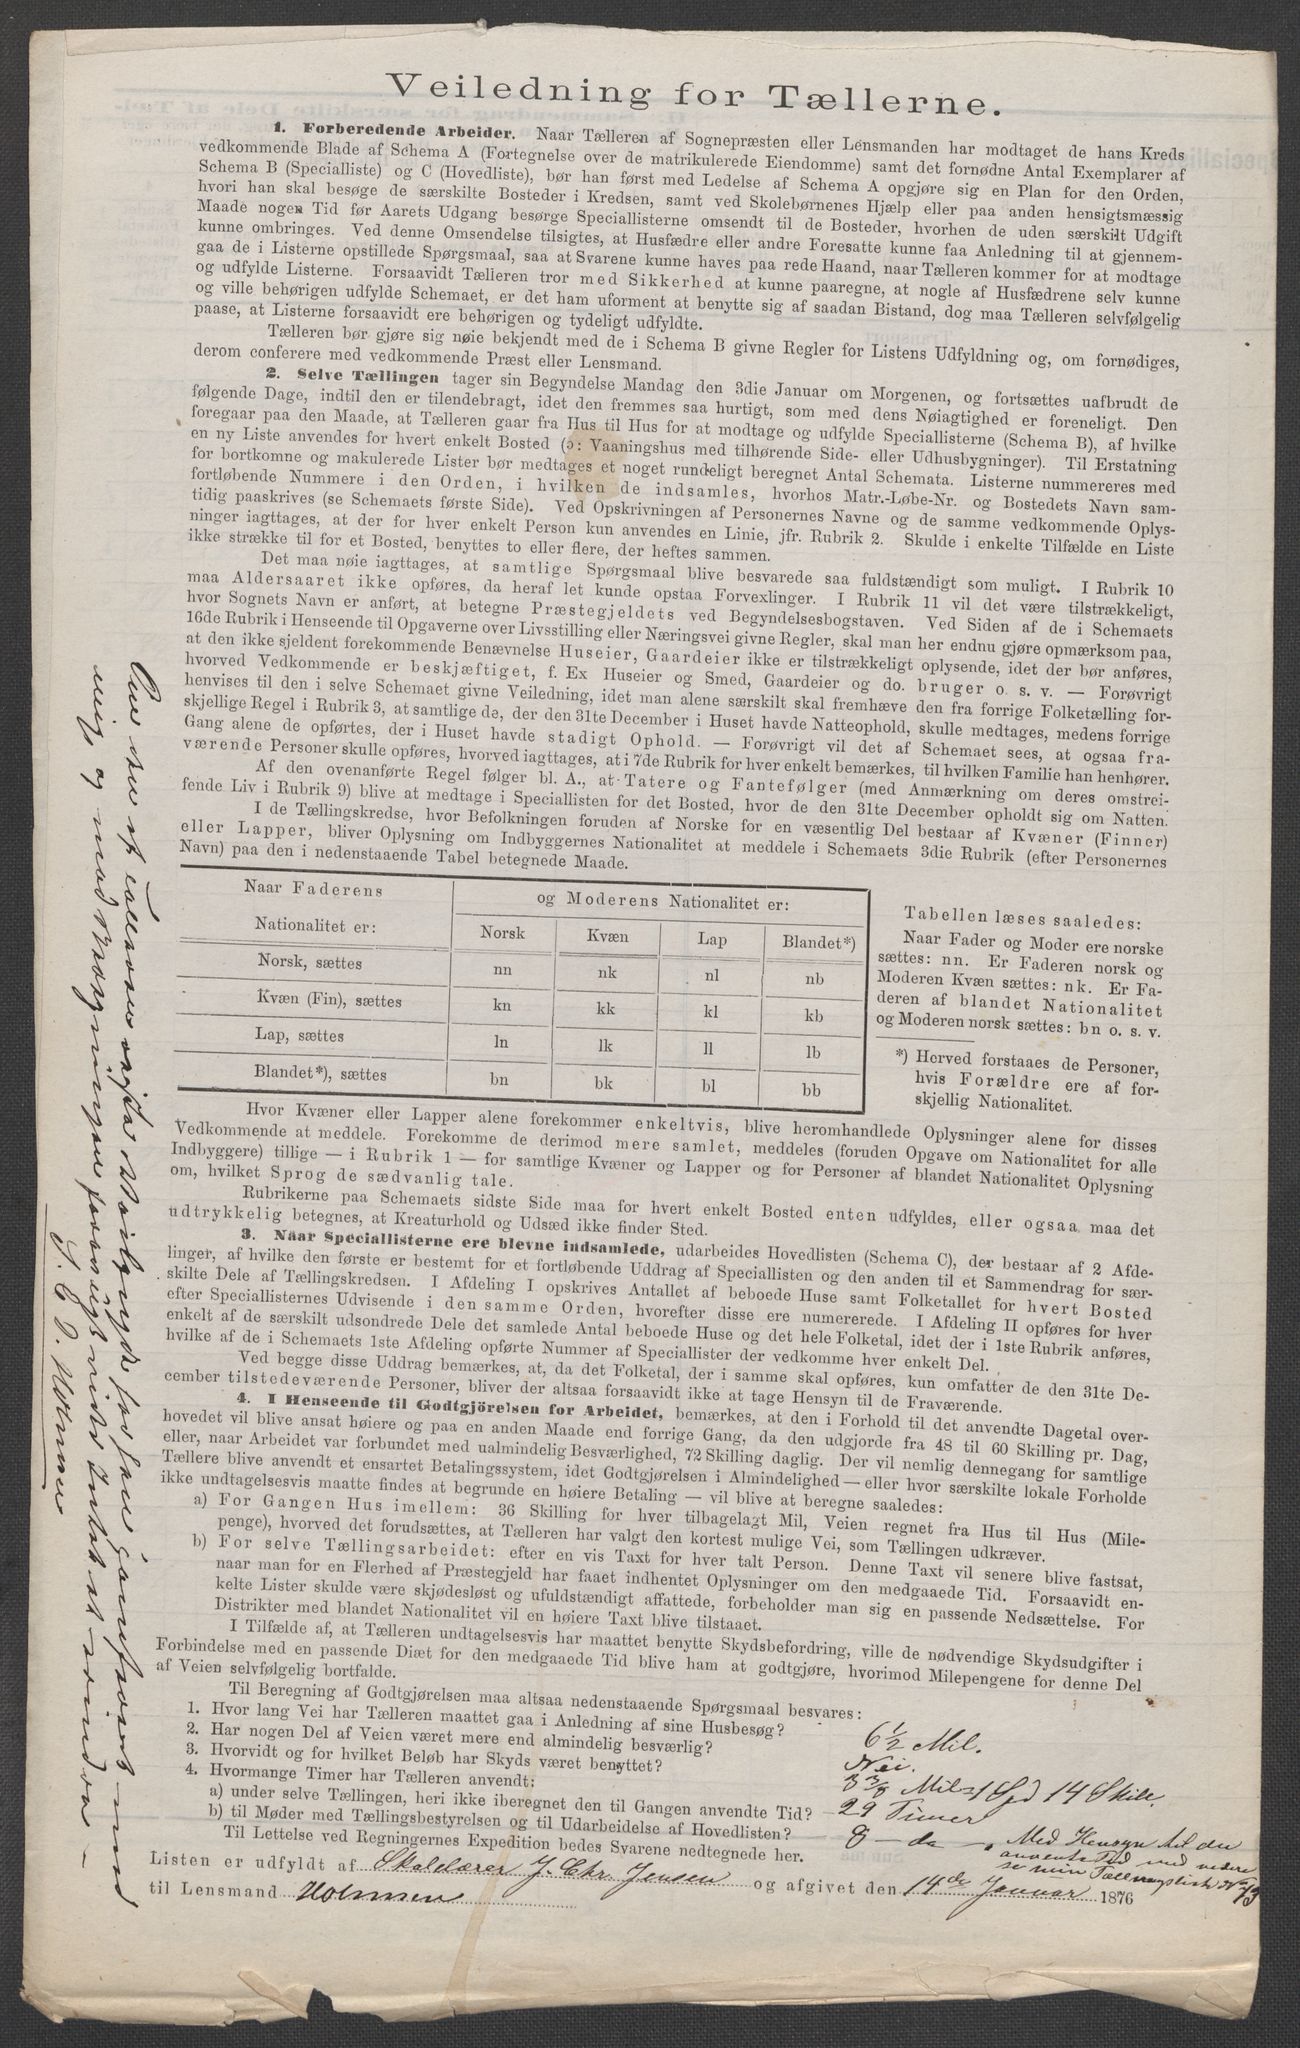 Veiledning for Tællerne.
1. Forberedende Arbeider. Naar Tælleren af Sognepræsten eller Lensmanden har modtaget de hans Kreds
vedkommende Blade af Schema A (Fortegnelse over de matrikulerede Eiendomme) samt det fornødne Antal Exemplarer af
Schema B (Specialliste) og C (Hovedliste), bør han først med Ledelse af Schema A opgjøre sig en Plan for den Orden,
hvori han skal besøge de særskilte Bosteder i Kredsen, samt ved Skolebørnenes Hjælp eller paa anden hensigtsmæssig
Maade nogen Tid før Aarets Udgang besørge Speciallisterne omsendt til de Bosteder, hvorhen de uden særskilt Udgift
kunne ombringes. Ved denne Omsendelse tilsigtes, at Husfædre eller andre Foresatte kunne faa Anledning til at gjennem-
gaa de i Listerne opstillede Spørgsmaal, saa at Svarene kunne haves paa rede Haand, naar Tælleren kommer for at modtage
og udfylde Listerne. Forsaavidt Tælleren tror med Sikkerhed at kunne paaregne, at nogle af Husfædrene selv kunne
og ville behørigen udfylde Schemaet, er det ham uforment at benytte sig af saadan Bistand, dog maa Tælleren selvfølgelig
paase, at Listerne forsaavidt ere behørigen og tydeligt udfyldte.
Tælleren bør gjøre sig nøie bekjendt med de i Schema B givne Regler for Listens Udfyldning og, om fornødiges,
derom conferere med vedkommende Præst eller Lensmand.
2. Selve Tællingen tager sin Begyndelse Mandag den 3die Januar om Morgenen, og fortsættes uafbrudt de
følgende Dage, indtil den er tilendebragt, idet den fremmes saa hurtigt, som med dens Nøiagtighed er foreneligt. Den
foregaar paa den Maade, at Tælleren gaar fra Hus til Hus for at modtage og udfylde Speciallisterne (Schema B), af hvilke
en ny Liste anvendes for hvert enkelt Bosted (ɔ: Vaaningshus med tilhørende Side- eller Udhusbygninger). Til Erstatning
for bortkomne og makulerede Lister bør medtages et noget rundeligt beregnet Antal Schemata. Listerne nummereres med
fortløbende Nummere i den Orden, i hvilken de indsamles, hvorhos Matr.-Løbe-Nr. og Bostedets Navn sam-
tidig paaskrives (se Schemaets første Side). Ved Opskrivningen af Personernes Navne og de samme vedkommende Oplys-
ninger iagttages, at der for hver enkelt Person kun anvendes en Linie, jfr. Rubrik 2. Skulde i enkelte Tilfælde en Liste
ikke strække til for et Bosted, benyttes to eller flere, der heftes sammen.
Det maa nøie iagttages, at samtlige Spørgsmaal blive besvarede saa fuldstændigt som muligt. I Rubrik 10
maa Aldersaaret ikke opføres, da heraf let kunde opstaa Forvexlinger. I Rubrik 11 vil det være tilstrækkeligt,
hvor Sognets Navn er anført, at betegne Præstegjeldets ved Begyndelsesbogstaven. Ved Siden af de i Schemaets
16de Rubrik i Henseende til Opgaverne over Livsstilling eller Næringsvei givne Regler, skal man her endnu gjøre opmærksom paa,
at den ikke sjeldent forekommende Benævnelse Huseier, Gaardeier ikke er tilstrækkeligt oplysende, idet der bør anføres,
hvorved Vedkommende er beskjæftiget, f. Ex Huseier og Smed, Gaardeier og do. bruger o. s. v. — Forøvrigt
henvises til den i selve Schemaet givne Veiledning, idet man alene særskilt skal fremhæve den fra forrige Folketælling for-
skjellige Regel i Rubrik 3, at samtlige de, der den 31te December i Huset havde Natteophold, skulle medtages, medens forrige
Gang alene de opførtes, der i Huset havde stadigt Ophold. — Forøvrigt vil det af Schemaet sees, at ogsaa fra-
værende Personer skulle opføres, hvorved iagttages, at i 7de Rubrik for hver enkelt bemærkes, til hvilken Familie han henhører.
Af den ovenanførte Regel følger bl. A., at Tatere og Fantefølger (med Anmærkning om deres omstrei-
fende Liv i Rubrik 9) blive at medtage i Speciallisten for det Bosted, hvor de den 31te December opholdt sig om Natten.
I de Tællingskredse, hvor Befolkningen foruden af Norske for en væsentlig Del bestaar af Kvæner (Finner)
eller Lapper, bliver Oplysning om Indbyggernes Nationalitet at meddele i Schemaets 3die Rubrik (efter Personernes
Navn) paa den i nedenstaaende Tabel betegnede Maade.
Naar Faderens og Moderens Nationalitet er:
Nationalitet er: Norsk Kvæn Lap Blandet*)
Norsk, sættes nn nk nl nb
Kvæn (Fin), sættes kn kk kl kb
Lap, sættes ln lk ll lb
Blandet*), sættes bn bk bl bb
Tabellen læses saaledes:
Naar Fader og Moder ere norske
sættes: nn. Er Faderen norsk og
Moderen Kvæn sættes: nk. Er Fa-
deren af blandet Nationalitet
og Moderen norsk sættes: bn o. s. v.
*) Herved forstaaes de Personer,
hvis Forældre ere af for-
skjellig Nationalitet.
Hvor Kvæner eller Lapper alene forekommer enkeltvis, blive heromhandlede Oplysninger alene for disses
Vedkommende at meddele. Forekomme de derimod mere samlet, meddeles (foruden Opgave om Nationalitet for alle
Indbyggere) tillige — i Rubrik 1 — for samtlige Kvæner og Lapper og for Personer af blandet Nationalitet Oplysning
om, hvilket Sprog de sædvanlig tale.
Rubrikerne paa Schemaets sidste Side maa for hvert enkelt Bosted enten udfyldes, eller ogsaa maa det
udtrykkelig betegnes, at Kreaturhold og Udsæd ikke finder Sted.
3. Naar Speciallisterne ere blevne indsamlede, udarbeides Hovedlisten (Schema C), der bestaar af 2 Afde-
linger, af hvilke den første er bestemt for et fortløbende Uddrag af Speciallisten og den anden til et Sammendrag for sær-
skilte Dele af Tællingskredsen. I Afdeling I opskrives Antallet af beboede Huse samt Folketallet for hvert Bosted
efter Speciallisternes Udvisende i den samme Orden, hvorefter disse ere numererede. I Afdeling II opføres for hver
enkelt af de særskilt udsondrede Dele det samlede Antal beboede Huse og det hele Folketal, idet der i 1ste Rubrik anføres,
hvilke af de i Schemaets 1ste Afdeling opførte Nummer af Speciallister der vedkomme hver enkelt Del.
Ved begge disse Uddrag bemærkes, at, da det Folketal, der i samme skal opføres, kun omfatter de den 31te De-
cember tilstedeværende Personer, bliver der altsaa forsaavidt ikke at tage Hensyn til de Fraværende.
4. I Henseende til Godtgjörelsen for Arbeidet, bemærkes, at den i Forhold til det anvendte Dagetal over-
hovedet vil blive ansat høiere og paa en anden Maade end forrige Gang, da den udgjorde fra 48 til 60 Skilling pr. Dag,
eller, naar Arbeidet var forbundet med ualmindelig Besværlighed, 72 Skilling daglig. Der vil nemlig dennegang for samtlige
Tællere blive anvendt et ensartet Betalingssystem, idet Godtgjørelsen i Almindelighed — eller hvor særskilte lokale Forholde
ikke undtagelsesvis maatte findes at begrunde en høiere Betaling — vil blive at beregne saaledes:
a) For Gangen Hus imellem: 36 Skilling for hver tilbagelagt Mil, Veien regnet fra Hus til Hus (Mile-
penge), hvorved det forudsættes, at Tælleren har valgt den kortest mulige Vei, som Tællingen udkræver.
b) For selve Tællingsarbeidet: efter en vis Taxt for hver talt Person. Denne Taxt vil senere blive fastsat,
naar man for en Flerhed af Præstegjeld har faaet indhentet Oplysninger om den medgaaede Tid. Forsaavidt en-
kelte Lister skulde være skjødesløst og ufuldstændigt affattede, forbeholder man sig en passende Nedsættelse. For
Distrikter med blandet Nationalitet vil en høiere Taxt blive tilstaaet.
I Tilfælde af, at Tælleren undtagelsesvis har maattet benytte Skydsbefordring, ville de nødvendige Skydsudgifter i
Forbindelse med en passende Diæt for den medgaaede Tid blive ham at godtgjøre, hvorimod Milepengene for denne Del
af Veien selvfølgelig bortfalde.
Til Beregning af Godtgjørelsen maa altsaa nedenstaaende Spørgsmaal besvares:
1. Hvor lang Vei har Tælleren maattet gaa i Anledning af sine Husbesøg? 6 1/2 Mil.
2. Har nogen Del af Veien været mere end almindelig besværlig? Nei.
3. Hvorvidt og for hvilket Beløb har Skyds været benyttet? 3 3/8 Mil 1 Spd 14 Skill.
4. Hvormange Timer har Tælleren anvendt:
a) under selve Tællingen, heri ikke iberegnet den til Gangen anvendte Tid? – 29 Timer
b) til Møder med Tællingsbestyrelsen og til Udarbeidelse af Hovedlisten? 8 – da –
Til Lettelse ved Regningernes Expedition bedes Svarene nedtegnede her.
Med Hensyn til den
anvendte Tid
se min Tællingsliste No 73
Listen er udfyldt af Skolelærer J. Chr. Jensen og afgivet den 14de Januar 1876
til Lensmand Holmsen
mig og mod
S. C. J. Holmsen